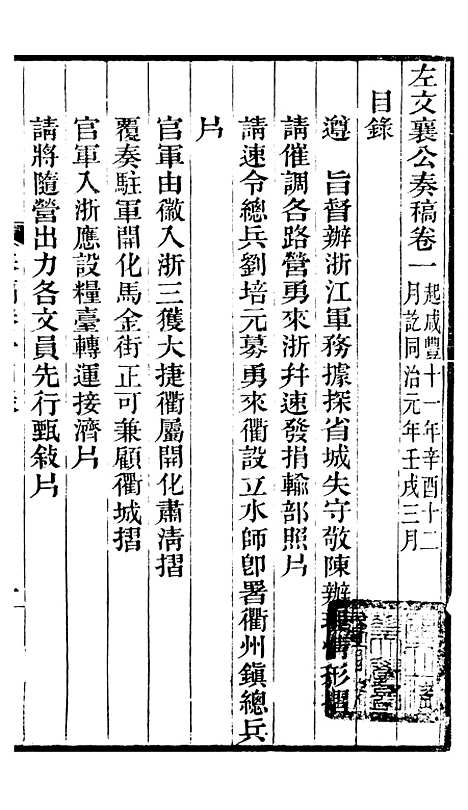 左文襄公奏稿卷一 起咸豐十一年辛酉十二
月訖同治元年壬戌三月
目錄
遵 旨督辦浙江軍務據探省城失守敬陳辦理情形摺
請催調各路營勇來浙幷速發捐輸部照片
請速令總兵劉培元募勇來衢設立水師卽署衢州鎭總兵
片
官軍由徽入浙三獲大捷衢屬開化肅淸摺
覆奏駐軍開化馬金街正可兼顧衢城摺
官軍入浙應設糧臺轉運接濟片
請將隨營出力各文員先行甄敍片